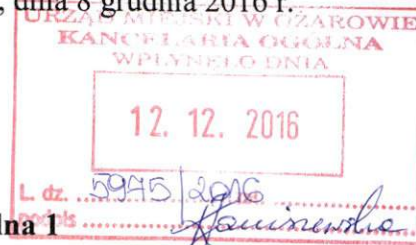 , dnia 8 grudnia 2016 r.
URZĄD MIEJSKI W OŻAROWIE
KANCELARIA OGÓLNA
WPŁYNĘŁO DNIA
12. 12. 2016
L. dz. 5945/2016
podpis
lna 1